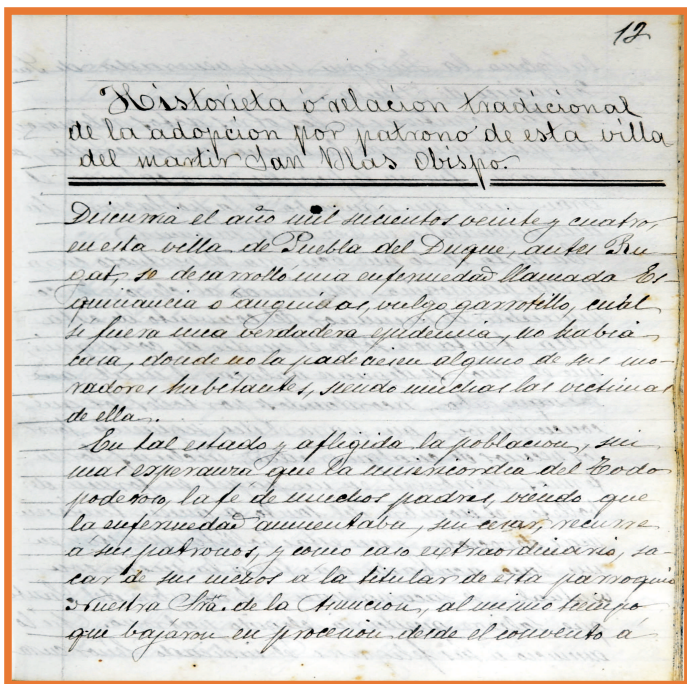 12
Historieta ó relacion tradicional
de la adopcion por patrono de esta villa
del martir San Blas Obispo.
Discurria el año mil seicientos veinte y cuatro,
en esta villa de Puebla del Duque, antes Ru-
gat, se desarrolló una enfermedad llamada Es-
quinancia o anginas, vulgo garrotillo, cual
si fuera una verdadera epidemia, no habia
casa, donde no la padeciesen alguno de sus mo-
radores habitantes, siendo muchas las victimas
de ella.
En tal estado y afligida la poblacion, sin
mas esperanza que la misericordia del Todo
poderoso, la fé de muchos padres, viendo que
la enfermedad aumentaba, sin cesar, recurre
á sus patronos, y como caso extraordinario, sa-
car de sus nichos a la titular de esta parroquia
Nuestra Sra. de la Asuncion, al mismo tiempo
que bajáron en procesion desde el convento á